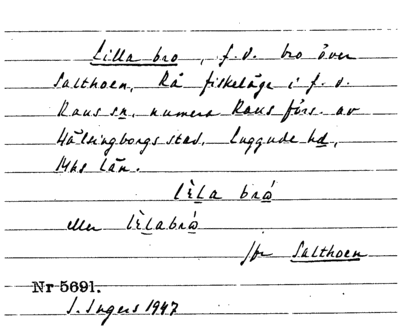 Lilla bro, f.d. bro över
Salthoen, Rå fiskeläge i f.d.
Raus sn, numera Raus förs. av
Hälsingborgs stad, Luggude hd,
Mhs län.
lèla brǫ́
eller lèlabrǫ̀
Jfr Salthoen
Nr 5691.
S. Ingers 1947